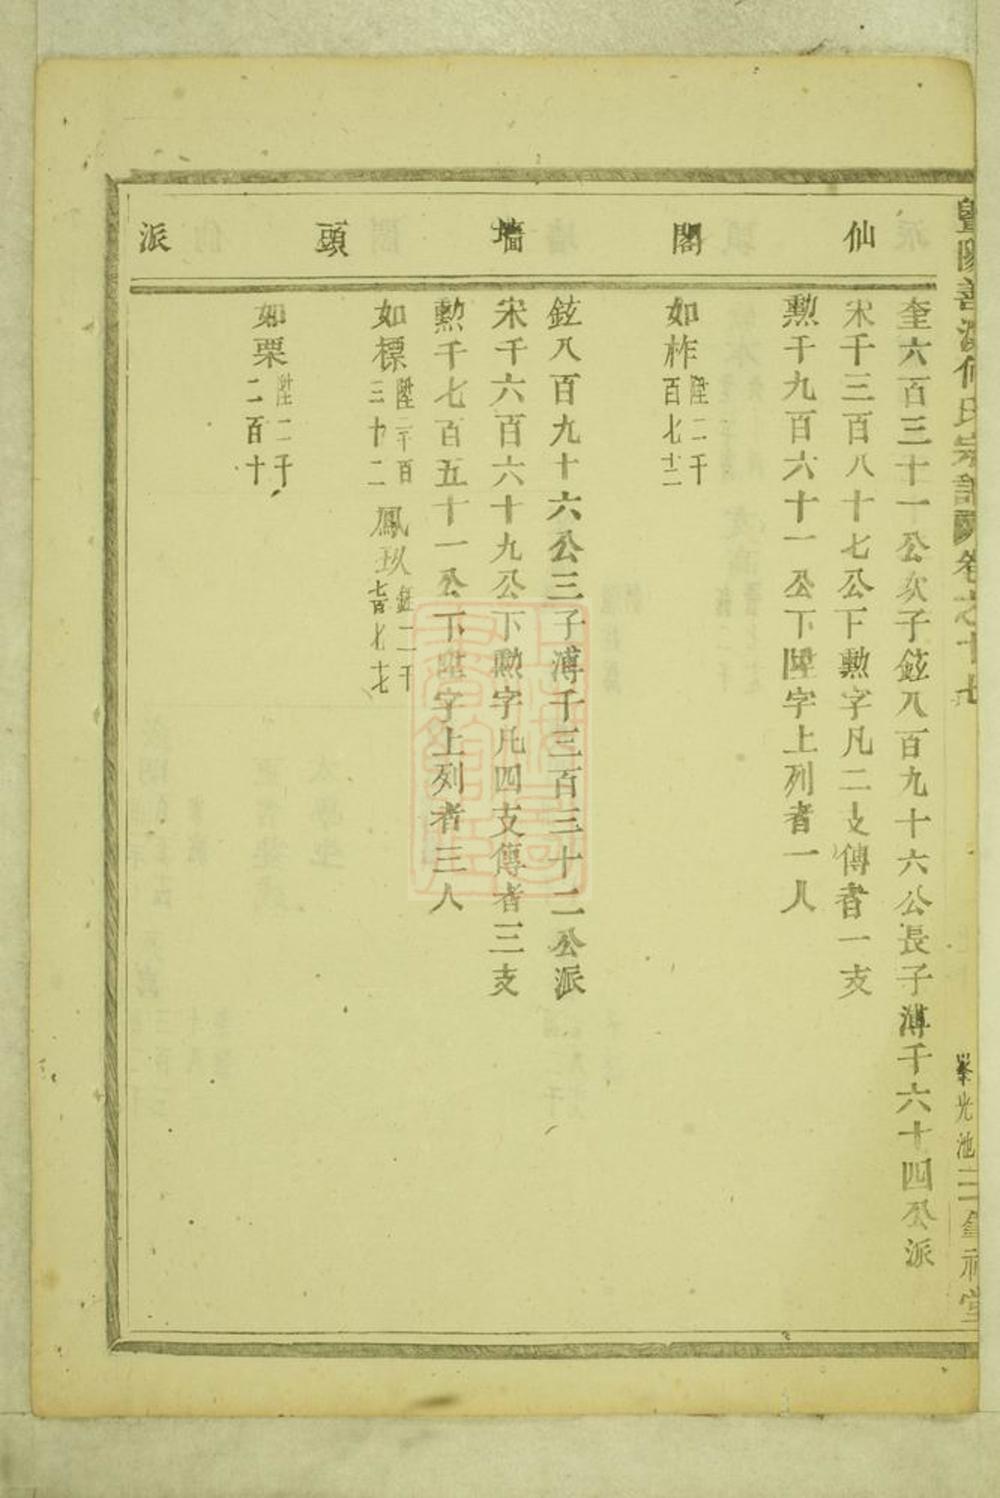 仙閣墻頭派
奎六百三十一公次子鉉八百九十六公長子溥千六十四公派
宋千三百八十七公下勲字凡二支傳者一支
勲千九百六十一公下陞字上列者一人
如柞 陞二千百七十二
鉉八百九十六公三子溥千三百三十二公派
宋千六百六十九公下勲字凡四支傳者三支
勲千七百五十一公下陞字上列者三人
如標 陞二千百三十二 鳳玖 鉦二千七百七十七
如栗 陞二千二百十
暨陽善溪何氏宗譜 卷之十七